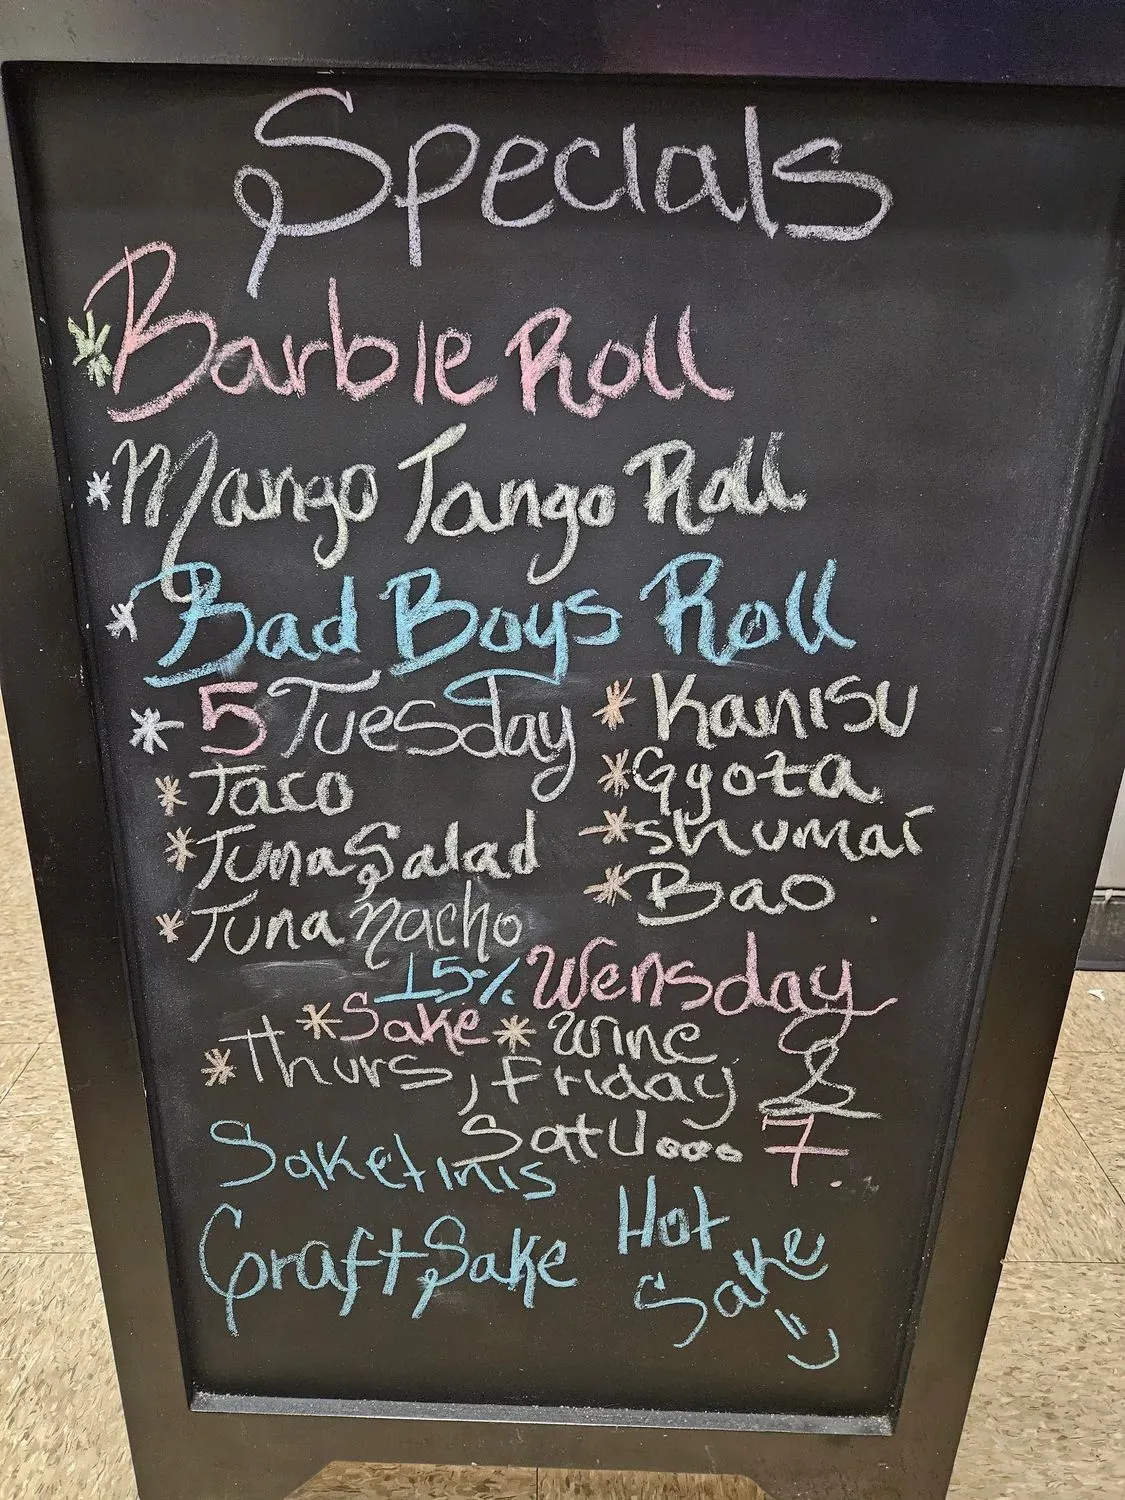 Specials
* Barbie Roll
* Mango Tango Roll
* Bad Boys Roll
* 5 Tuesday
* Taco
* Tuna Salad
* Tuna Nacho
* Kanisu
* Gyoza
* Shumai
* Bao
15% Wensday
* Sake * Wine
* Thurs, Friday &
Satu... 7.
Saketinis
Craft Sake
Hot
Sake